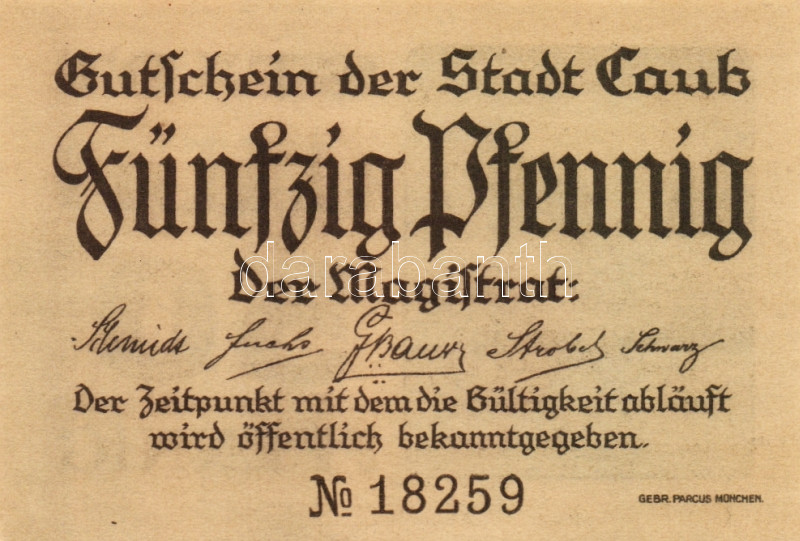 Gutschein der Stadt Caub
Fünfzig Pfennig
Der Magistrat:
darabanth
Schmidt Fuchs Strobel Schwarz
Der Zeitpunkt mit dem die Gültigkeit abläuft
wird öffentlich bekanntgegeben.
№ 18259
GEBR. PARCUS MÜNCHEN.